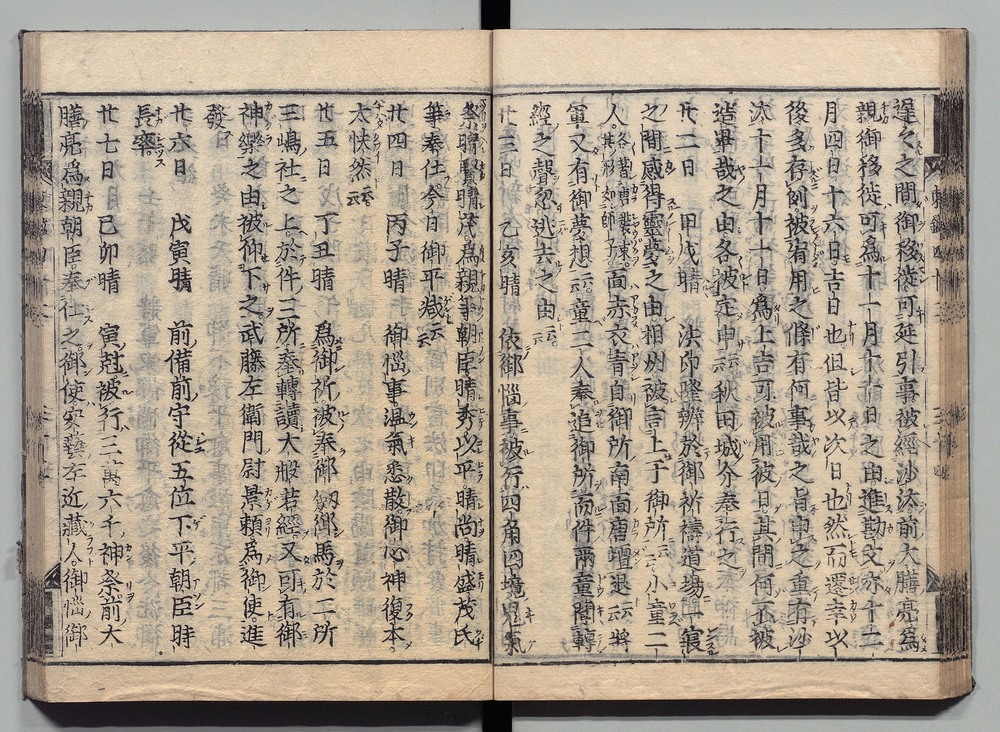 遲々之間御移徙可延引事被經沙汰前大膳亮爲
親御移徙可爲十一月十六日之由進勘文亦十二
月四日十六日吉日也但皆以次日也然而遷幸以
後多存例被宥用之條有何事哉之旨申之重有沙
汰十一月十一日爲上吉可被用彼日其間何不被
造畢哉之由各被定申云云秋田城介奉行之
廿二日 甲戌晴 法印隆辨於御祈禱道場
之間感得靈夢之由相州被言上于御所云云小童二
人各著唐裝束其形如師子面赤衣青自御所南面唐壇退云云將
軍又有御夢想云云童二人奉追御所而件兩童聞轉
經之聲忽逃去之由云云
廿三日 乙亥晴 依御惱事被行四角四境鬼氣
祭晴賢晴茂爲親等朝臣晴秀以平晴尚晴盛茂氏
等奉仕今日御平減云云
廿四日 丙子晴 御惱事溫氣悉散御心神復本
太快然云云
廿五日 丁丑晴 爲御祈被奉御釼御馬於二所
三嶋社之上於件三所奉轉讀大般若經又可有御
神樂之由被仰下之武藤左衞門尉景賴爲御使進
發
廿六日 戊寅晴 前備前守從五位下平朝臣時
長卒
廿七日 己卯晴 寅尅被行三萬六千神祭前大
膳亮爲親朝臣奉仕之御使安藝左近藏人御惱御